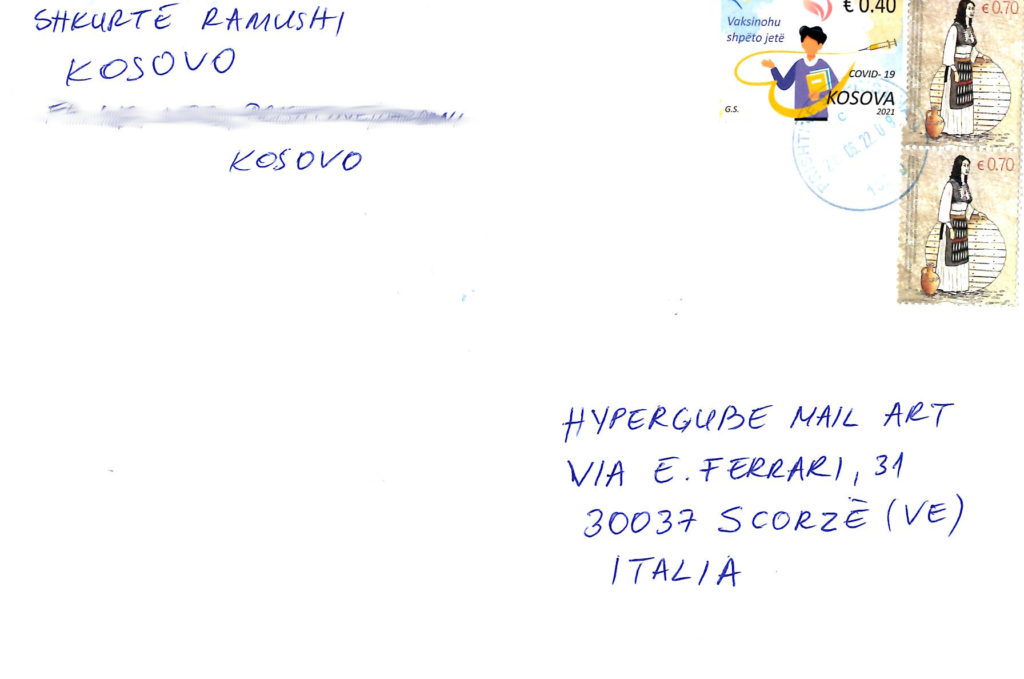 SHKURTË RAMUSHI
KOSOVO
KOSOVO
€ 0.40
Vaksinohu
shpëto jetë
COVID- 19
KOSOVA
2021
G.S.
€ 0.70
€ 0.70
HYPERGUBE MAIL ART
VIA E. FERRARI, 31
30037 SCORZĒ (VE)
ITALIA